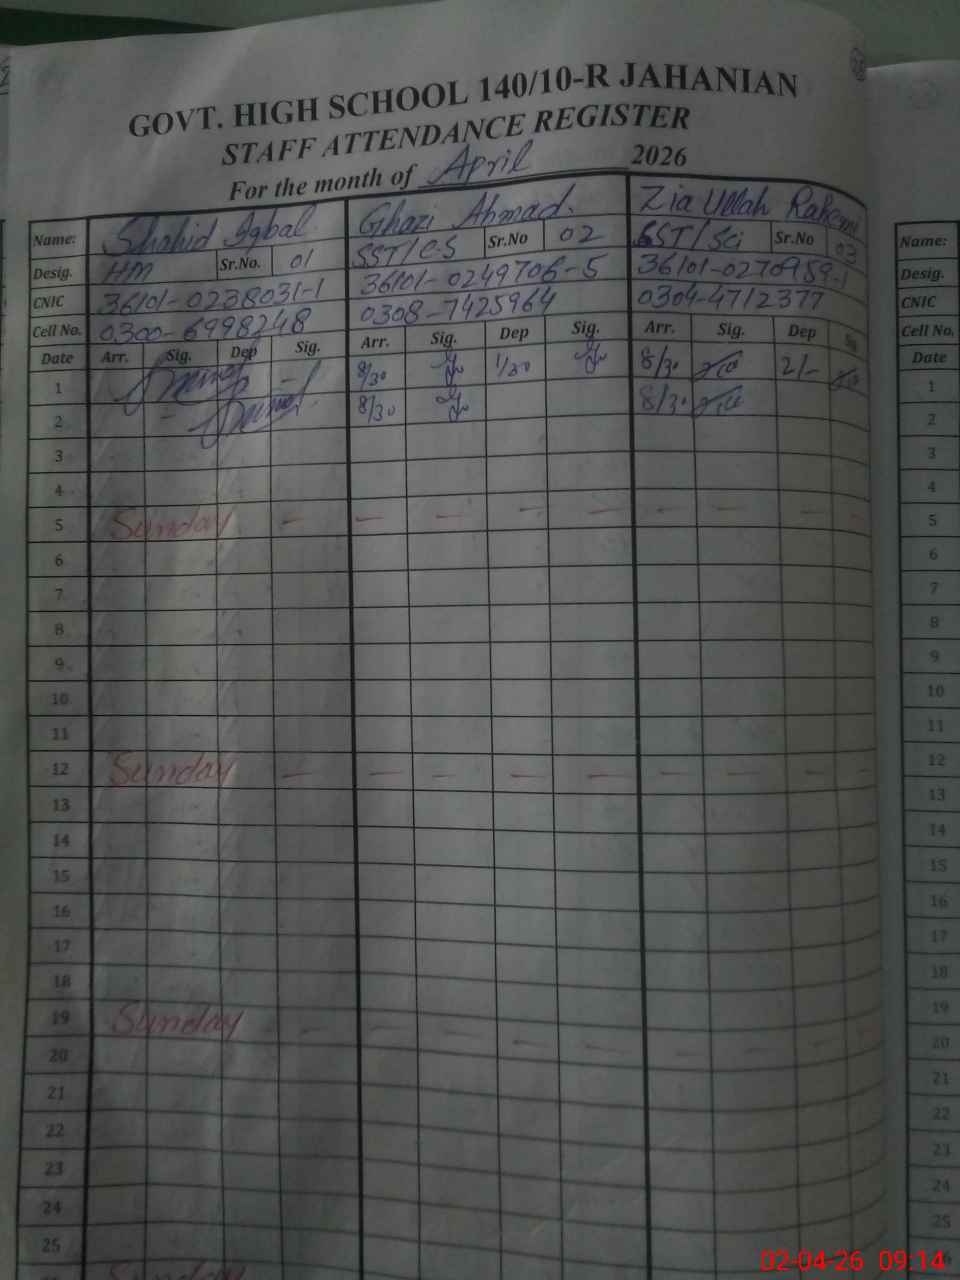 GOVT. HIGH SCHOOL 140/10-R JAHANIAN
STAFF ATTENDANCE REGISTER
For the month of April 2026
Name: Shahid Iqbal Ghazi Ahmad. Zia Ullah Name:
Desig. HM Sr.No. 01 SST/C.S Sr.No 02 SST/Sci Sr.No 03 Desig.
CNIC 36101-0238031-1 36101-0249706-5 36101-0270959-1 CNIC
Cell No. 0300-6998248 0308-7425964 0304-4712377 Cell No.
Date Arr. Sig. Dep Sig. Arr. Sig. Dep Sig. Arr. Sig. Dep Sig Date
1 8/30 1/30 8/30 2/- 1
2 8/30 8/30 2
3 3
4 4
5 Sunday - - - - - - - - - 5
6 6
7 7
8 8
9 9
10 10
11 11
12 Sunday - - - - - - - - - 12
13 13
14 14
15 15
16 16
17 17
18 18
19 Sunday - - - - - - - - - 19
20 20
21 21
22 22
23 23
24 24
25 25
Sunday
02-04-26 09:14